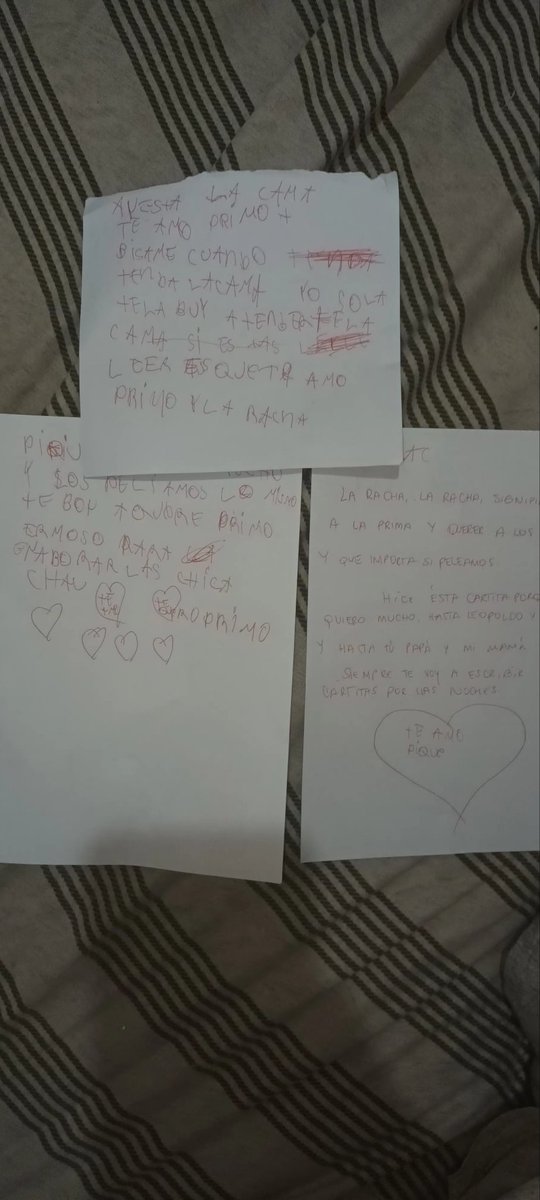 LA CAMA
TE AMO PRIMO
DIGAME CUANDO
TENDA LACAMA YO SOLA
TELA BUY ATENDER TELA
CAMA SI ES TAS
QUETE AMO
PRIMO Y LA RACHA
Y SOS PELIAMOS LO MISMO
TE BOY PRIMO
ERMOSO PARA
LAS CHICA
CHAU
PRIMO
LA RACHA, LA RACHA,
A LA PRIMA Y QUERER A LOS
Y QUE IMPORTA SI PELEAMOS.
HICE ÉSTA CARTITA
QUIERO MUCHO, HASTA LEOPOLDO Y
Y HASTA TÚ PAPÁ Y MI MAMÁ
SIEMPRE TE VOY A ESCRIBIR
CARTITAS POR LAS NOCHES.
TE AMO
PIQUE